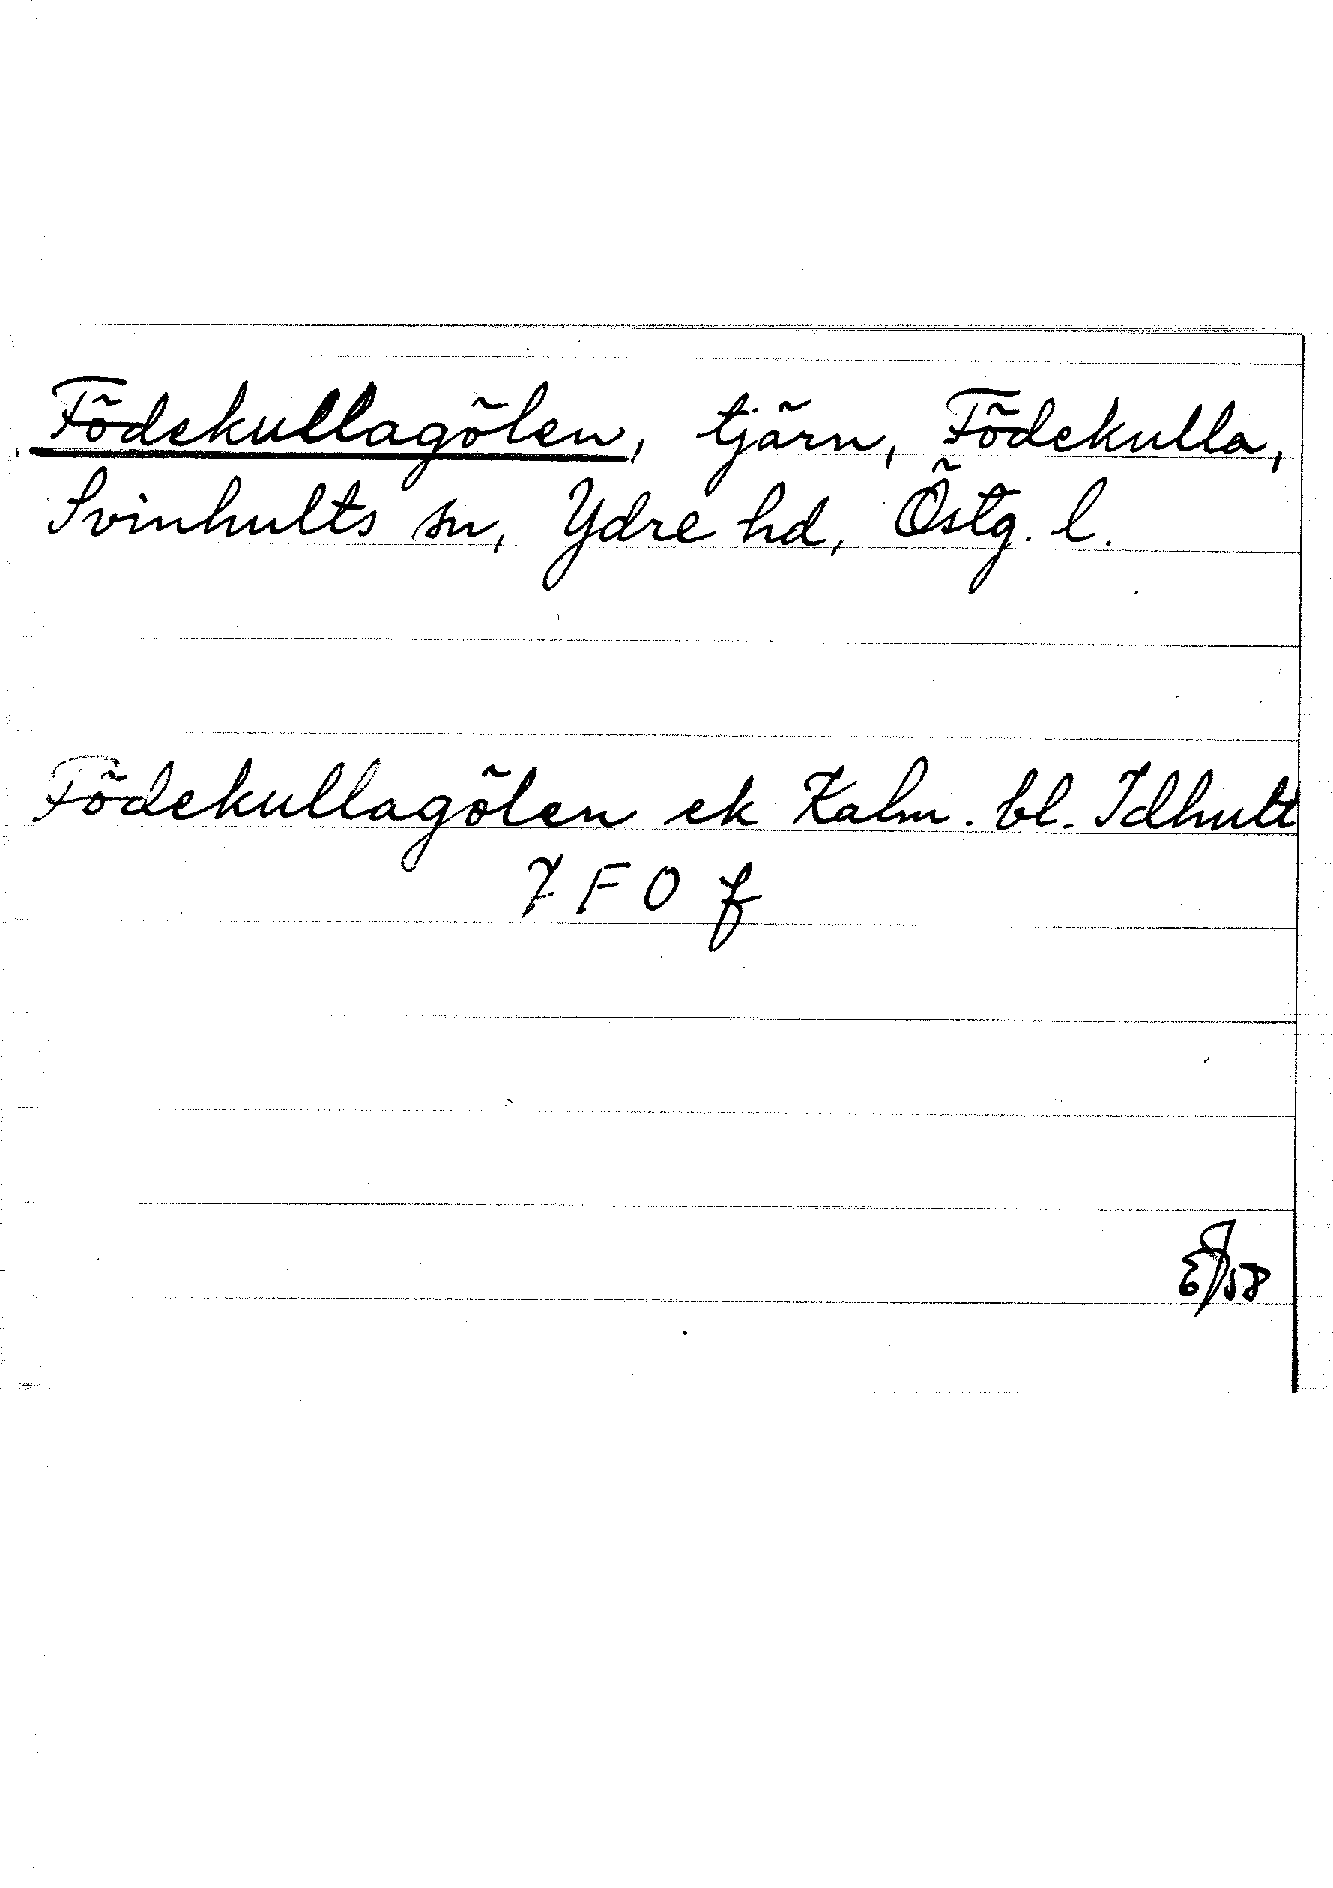 Födekullagölen, tjärn, Födekulla,
Svinhults sn, Ydre hd, Östg. l.
Födekullagölen ek Kalm. bl. Idhult
7 F O f